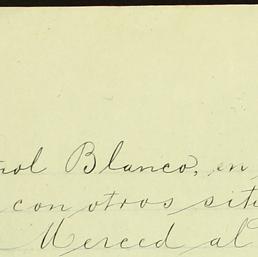 ñol Blanco, en
con otros situ
Merced al